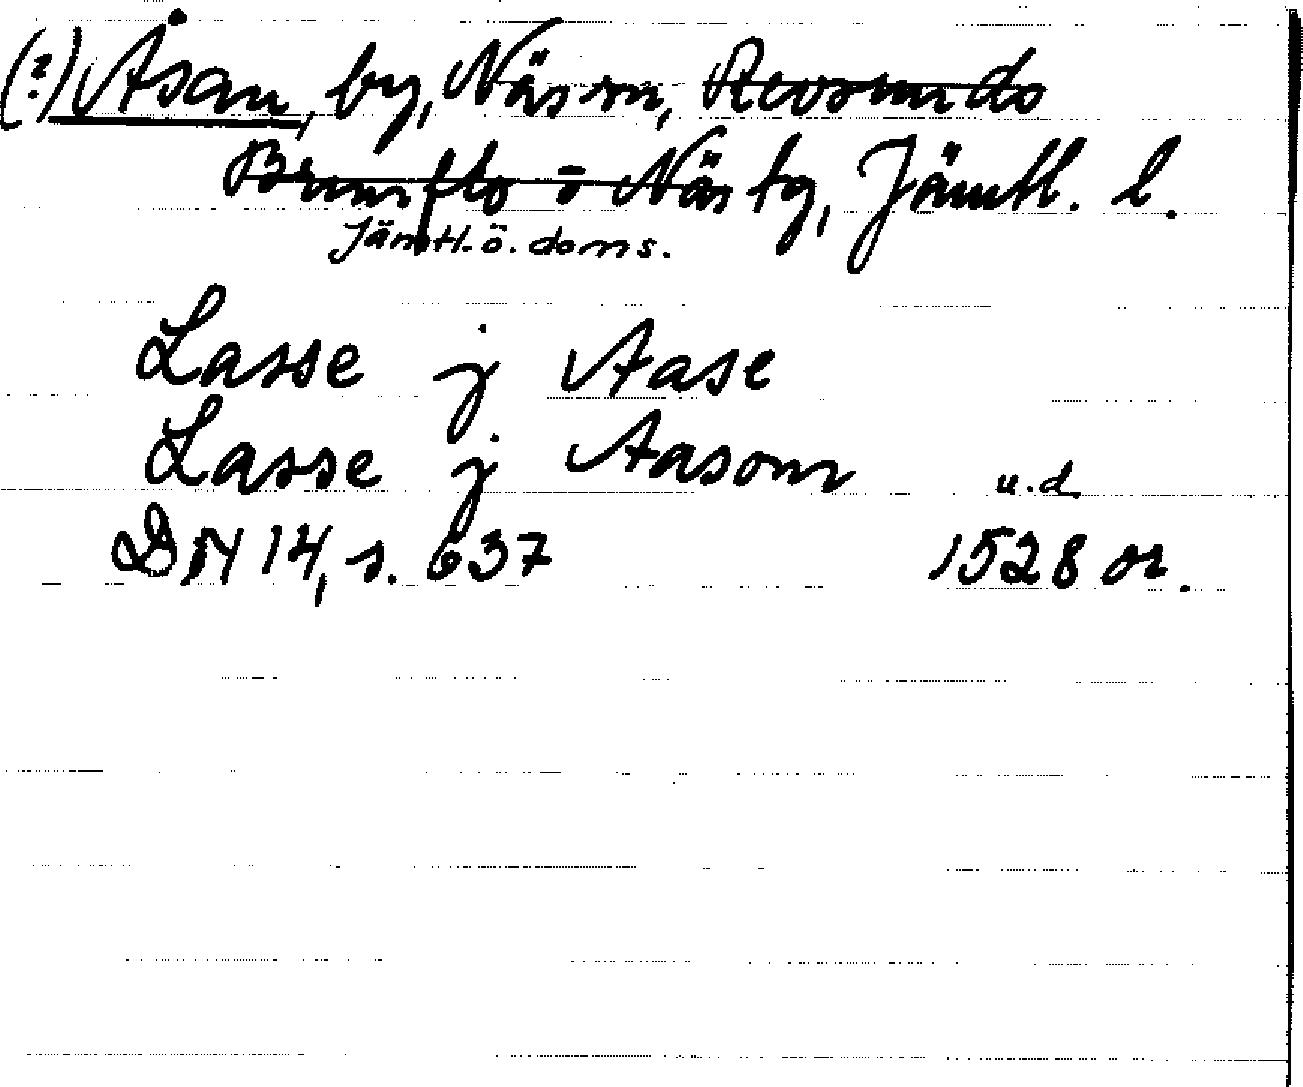 (?) Åsan, by, Näs sn, Revsunds
Brunflo o Näs tg, Jämtl. l.
Jämtl. ö. doms.
Lasse j Aase
Lasse j Aasom u.d.
DN 14, s. 637 1528 or.